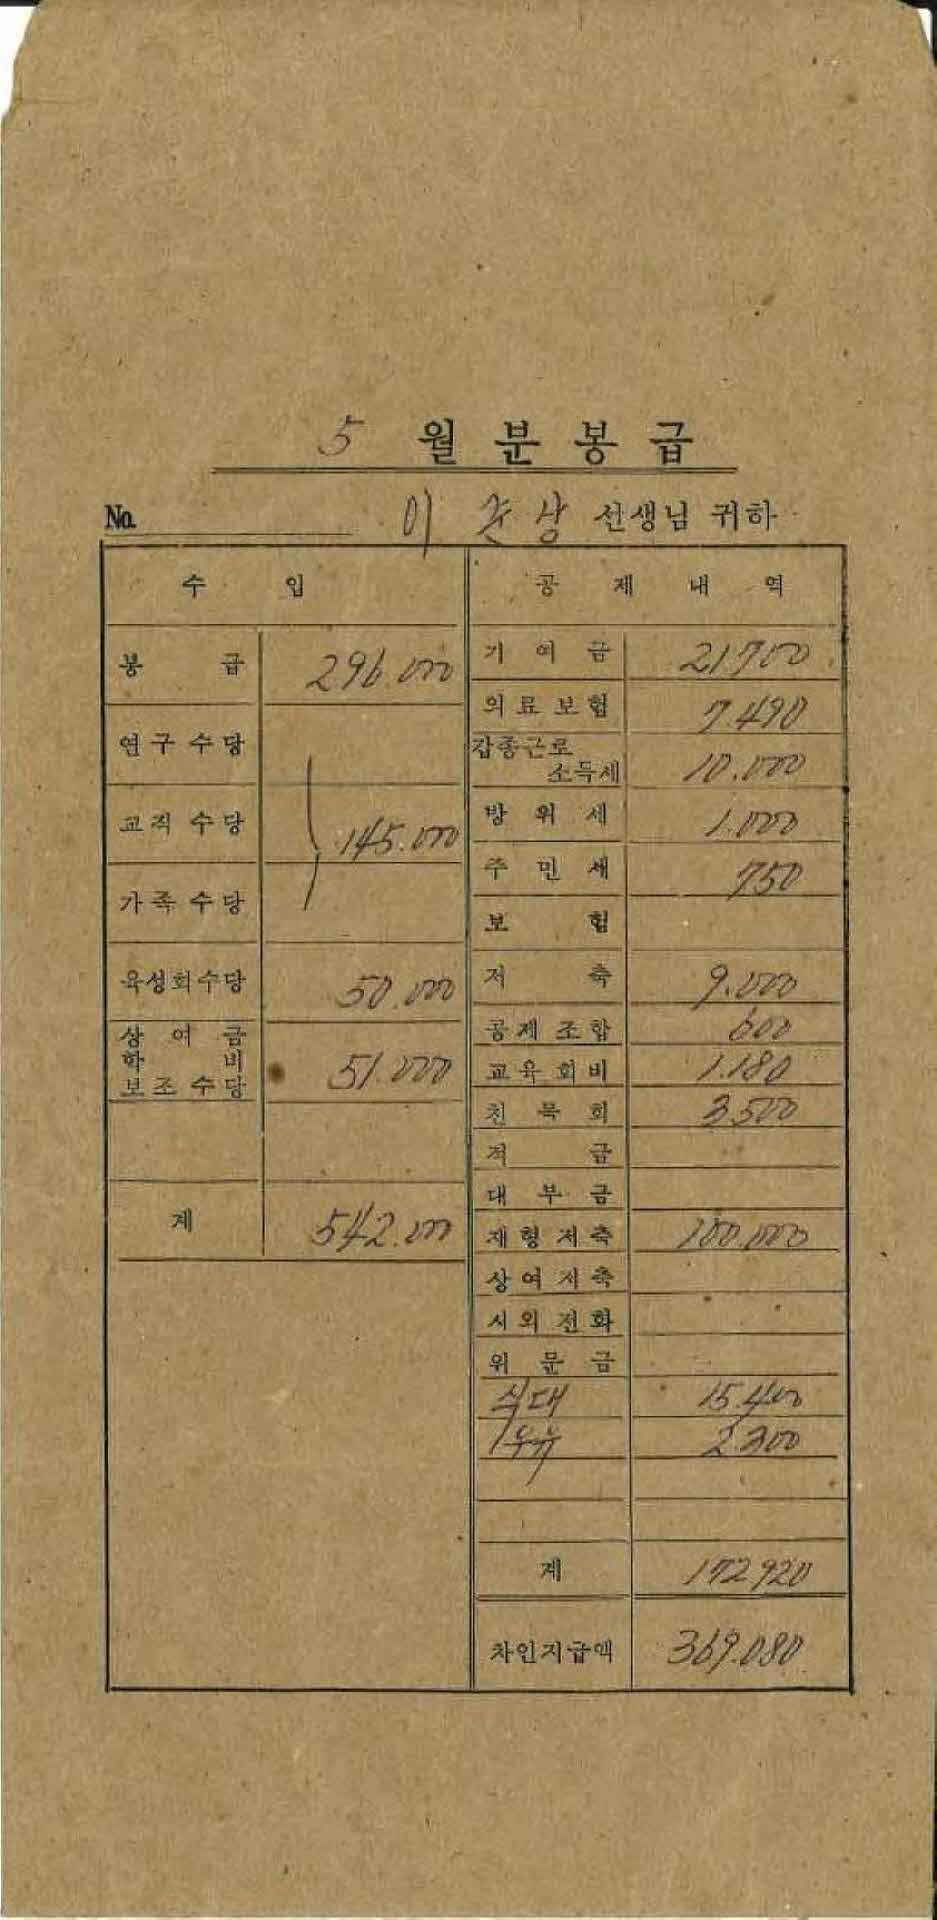 5 월 분 봉 급
No. 이 춘 상 선생님 귀하
수 입
봉 급 296.000
연구수당
교직수당 145.000
가족수당
육성회수당 50.000
상 여 금
학 비
보조수당 51.000
계 542.000
공 제 내 역
기 여 금 21700
의료보험 7.490
갑종근로
소득세 10.000
방 위 세 1.000
주 민 세 750
보 험
저 축 9.000
공제조합 600
교육회비 1.180
친 목 회 3.500
적 금
대 부 금
재형저축 100.000
상여저축
시외전화
위 문 금
식대 15.400
우유 2.300
계 172920
차인지급액 369.080